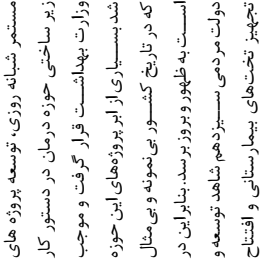 مستمر شبانه روزی، توسعه پروژه های
زیر ساختی حوزه درمان در دستور کار
وزارت بهداشت قرار گرفت و موجب
شد بسیاری از ابر پروژه‌های این حوزه
که در تاریخ کشور بی‌نمونه و بی‌مثال
است به ظهور و بروز برسد. بنابراین در
دولت مردمی سیزدهم شاهد توسعه و
تجهیز تخت‌های بیمارستانی و افتتاح